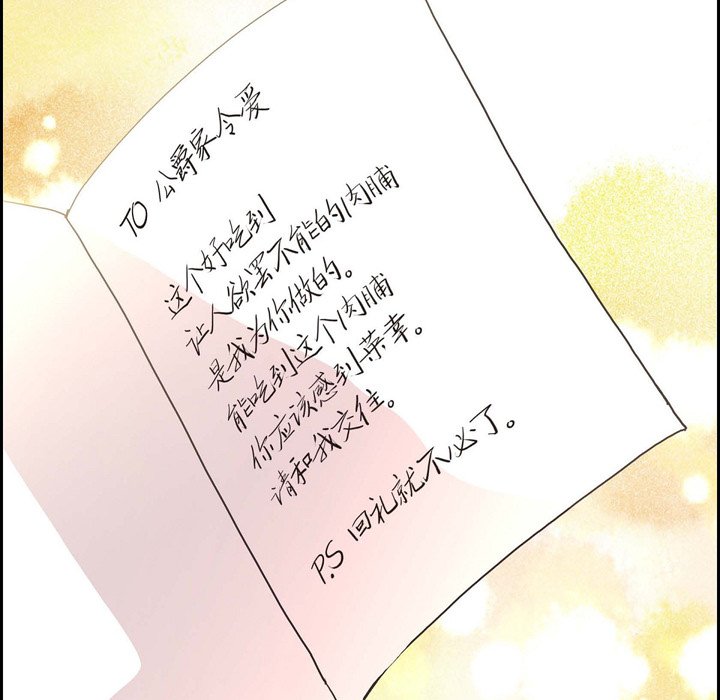 TO 公爵家令爱
这个好吃到
让人欲罢不能的肉脯
是我为你做的。
能吃到这个肉脯
你应该感到荣幸。
请和我交往。
P.S 回礼就不必了。